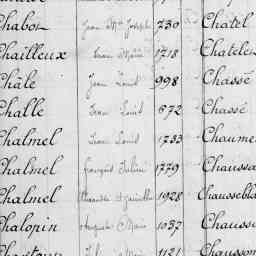 Chabot Jean Mie Joseph 730 Chatel
Chailleux Jean Marie 1718 Chatelet
Châle Jean Louis 998 Chassé
Challe Jean Louis 672 Chassé
Chalmel Jean Louis 1733 Chaume
Chalmel François Julien 1779 Chaussa
Chalmel Alexandre 1928 Chaussebla
Chalopin Auguste Marie 1037 Chausso
1121 Chausson